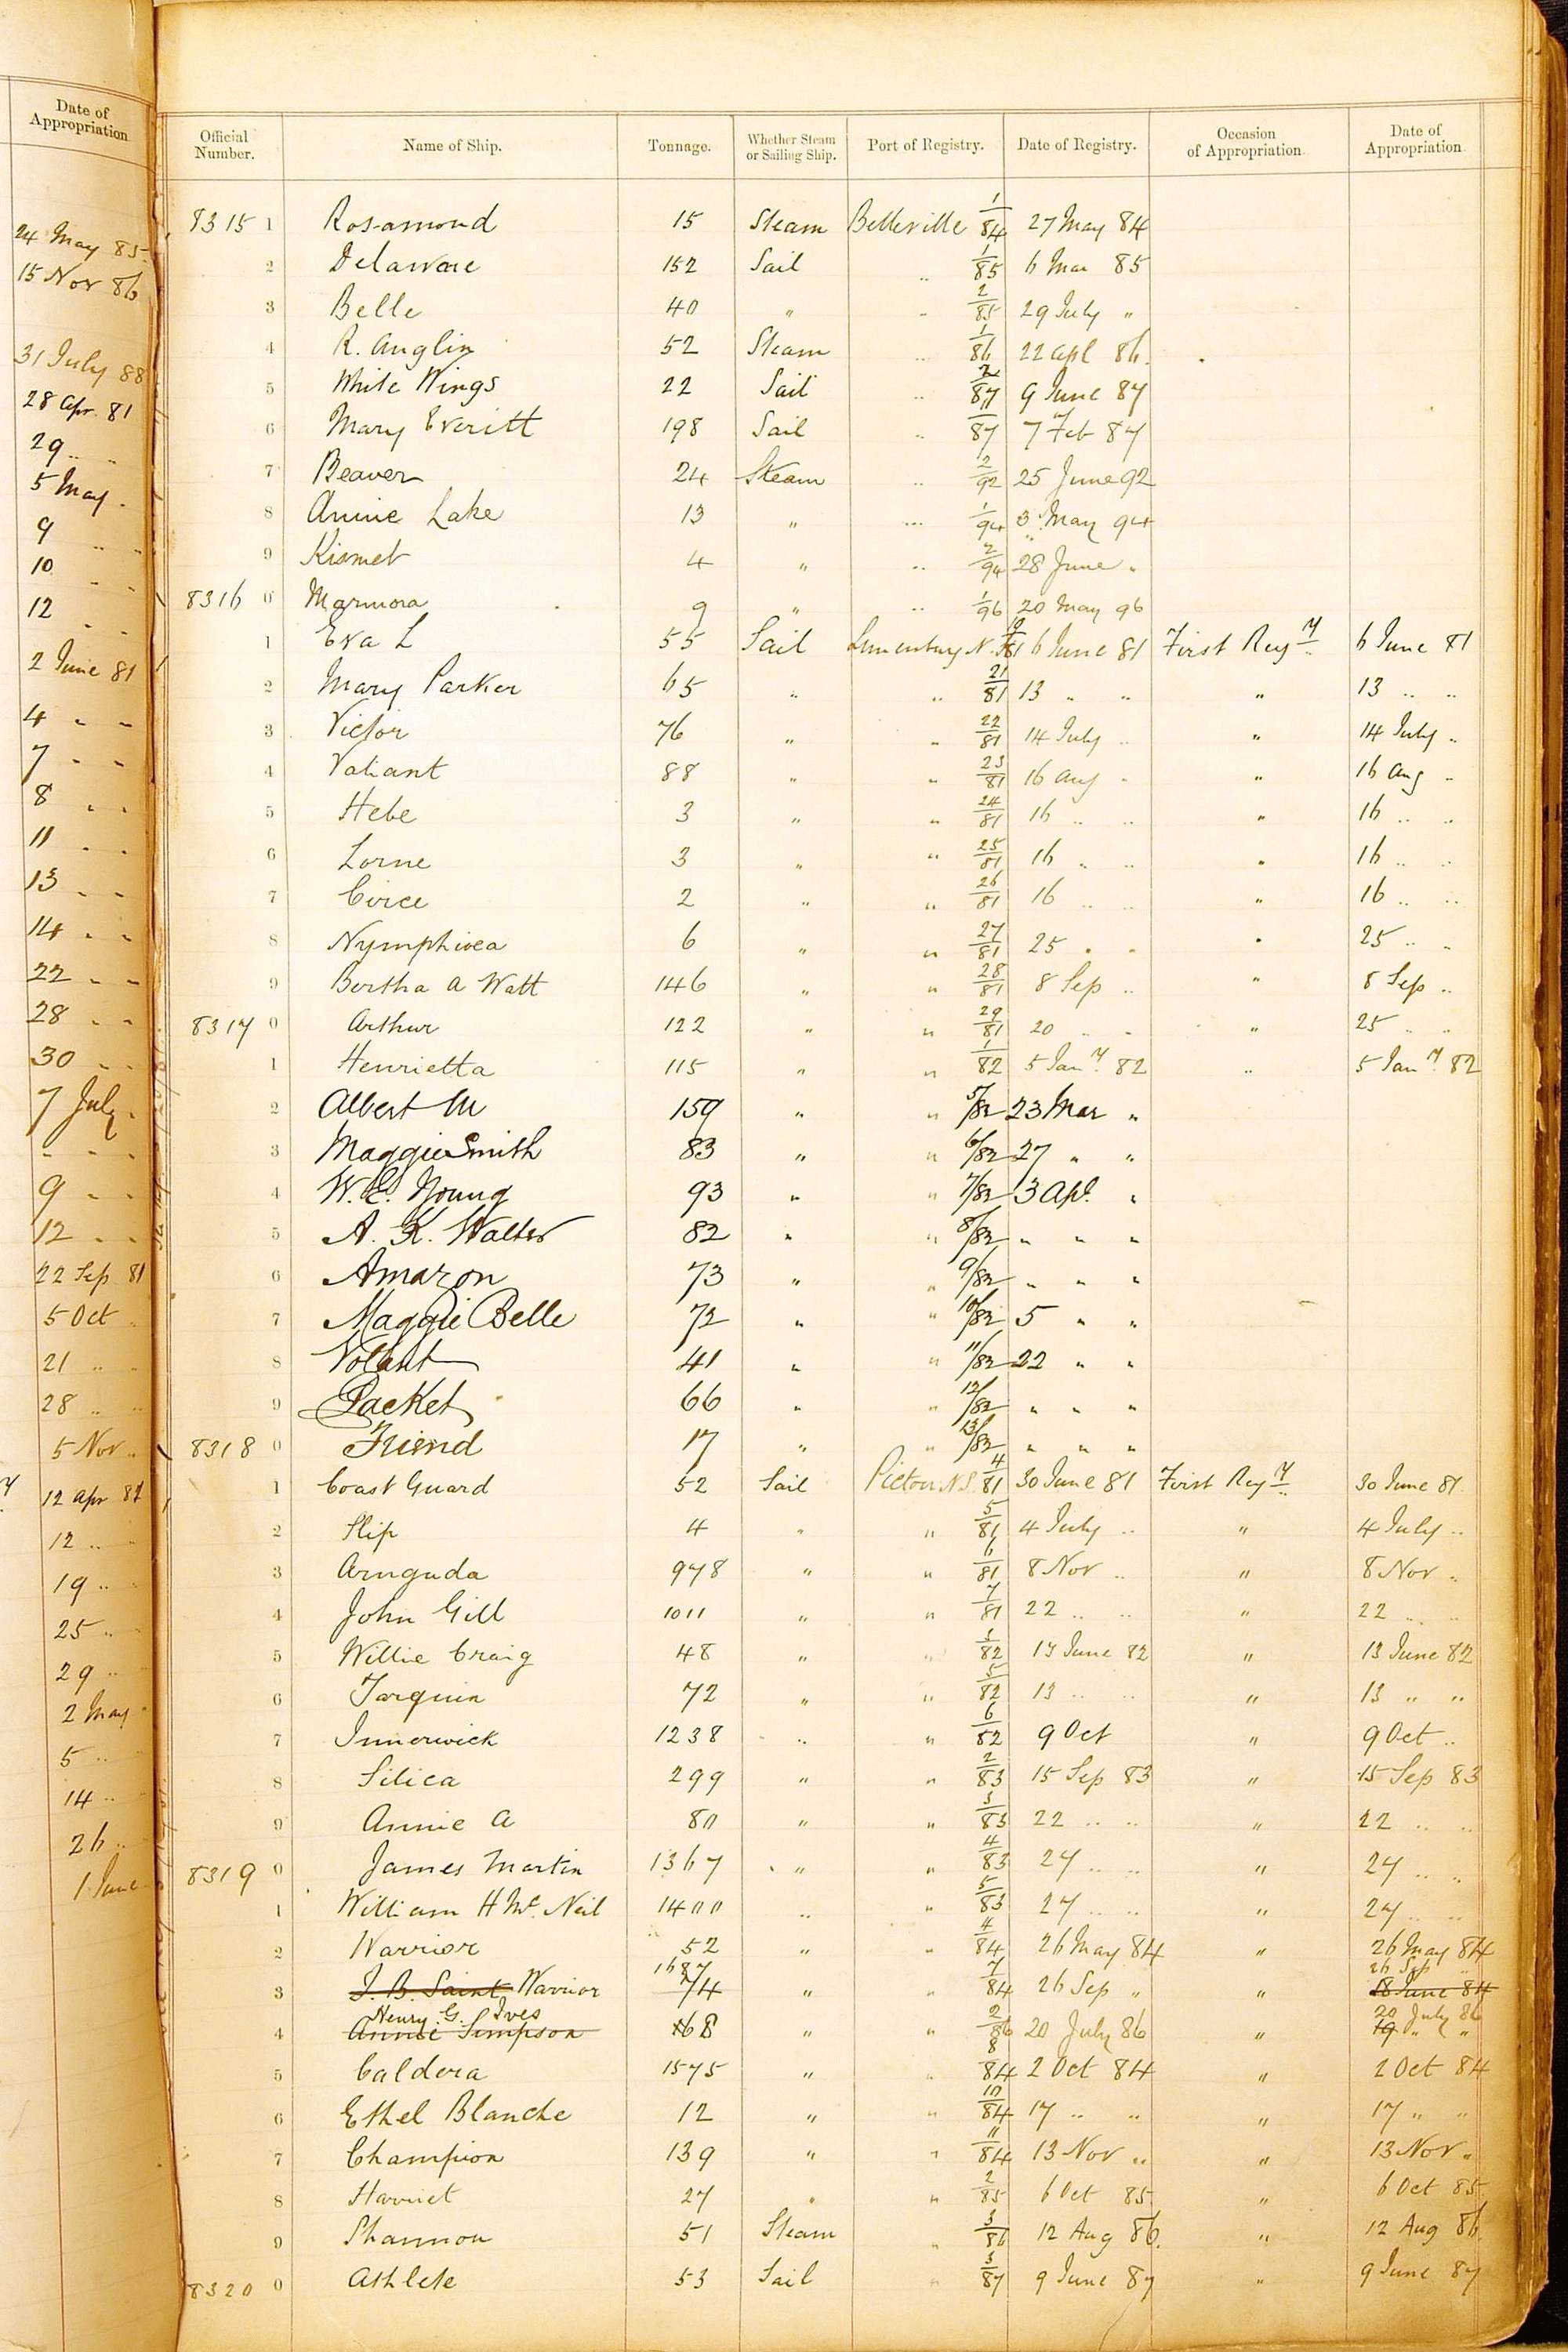 Date of Appropriation
24 May 85
15 Nov 86
31 July 88
28 Apr. 81
29 " "
5 May "
9 " "
10 " "
12 " "
2 June 81
4 " "
7 " "
8 " "
11 " "
13 " "
14 " "
22 " "
28 " "
30 " "
7 July "
" " "
9 " "
12 " "
22 Sep 81
5 Oct "
21 " "
28 " "
5 Nov "
12 Apr 82
12 " "
19 " "
25 " "
29 " "
2 May "
5 " "
14 " "
26 " "
1 June
Official Number. Name of Ship. Tonnage. Whether Steam or Sailing Ship. Port of Registry. Date of Registry. Occasion of Appropriation. Date of Appropriation.
8315 1 Rosamond 15 Steam Belleville 1/84 27 May 84
2 Delaware 152 Sail " 1/85 6 Mar 85
3 Belle 40 " " 2/85 29 July "
4 R. Anglin 52 Steam " 1/86 22 Apl 86.
5 White Wings 22 Sail " 2/87 9 June 87
6 Mary Everitt 198 Sail " 1/87 7 Feb 87
7 Beaver 24 Steam " 2/92 25 June 92
8 Annie Lake 13 " " 1/94 3 May 94
9 Kismet 4 " " 2/94 28 June "
8316 0 Marmora 9 " " 1/96 20 May 96
1 Eva L 55 Sail Lunenburg N.S. /81 6 June 81 First Regy 6 June 81
2 Mary Parker 65 " " 21/81 13 " " " 13 " "
3 Victor 76 " " 22/81 14 July " " 14 July "
4 Valiant 88 " " 23/81 16 Aug " " 16 Aug "
5 Hebe 3 " " 24/81 16 " " " 16 " "
6 Lorne 3 " " 25/81 16 " " " 16 " "
7 Circe 2 " " 26/81 16 " " " 16 " "
8 Nymphicea 6 " " 27/81 25 " " " 25 " "
9 Bertha A Watt 146 " " 28/81 8 Sep " " 8 Sep "
8317 0 Arthur 122 " " 29/81 20 " " " 25 " "
1 Henrietta 115 " " 1/82 5 Jany. 82 " 5 Jany. 82
2 Albert M 159 " " 5/82 23 Mar "
3 Maggie Smith 83 " " 6/82 27 " "
4 W. E. Young 93 " " 7/82 3 Apl. "
5 A. K. Walters 82 " " 8/82 " " "
6 Amazon 73 " " 9/82 " " "
7 Maggie Belle 72 " " 10/82 5 " "
8 Volant 41 " " 11/82 22 " "
9 Packet 66 " " 12/82 " " "
8318 0 Friend 17 " " 13/82 " " "
1 Coast Guard 52 Sail Pictou N.S. 4/81 30 June 81 First Regy 30 June 81
2 Slip 4 " " 5/81 4 July " " 4 July "
3 Arnguda 978 " " 6/81 8 Nov " " 8 Nov "
4 John Gill 1011 " " 7/81 22 " " " 22 " "
5 Willie Craig 48 " " /82 13 June 82 " 13 June 82
6 Tarquin 72 " " 5/82 13 " " " 13 " "
7 Innerwick 1238 " " 6/82 9 Oct " 9 Oct "
8 Silica 299 " " 2/83 15 Sep 83 " 15 Sep 83
9 Annie A 80 " " 3/83 22 " " " 22 " "
8319 0 James Martin 1367 " " 4/83 27 " " " 27 " "
1 William H Mc Neil 1400 " " 5/83 27 " " " 27 " "
2 Warrior 52 " " 4/84 26 May 84 " 26 May 84
1687 26 Sep "
3 J. B. Saint Warrior 74 " " 7/84 26 Sep " " 18 June 84
Henry G. Ives 20 July 86
4 Annie Simpson 68 " " 2/86 20 July 86 " 19 " "
5 Caldera 1575 " " 8/84 2 Oct 84 " 2 Oct 84
6 Ethel Blanche 12 " " 10/84 17 " " " 17 " "
7 Champion 139 " " 11/84 13 Nov " " 13 Nov "
8 Harriet 27 " " 2/85 6 Oct 85 " 6 Oct 85
9 Shannon 51 Steam " 3/86 12 Aug 86. " 12 Aug 86.
8320 0 Athlete 53 Sail " 3/87 9 June 87 " 9 June 87